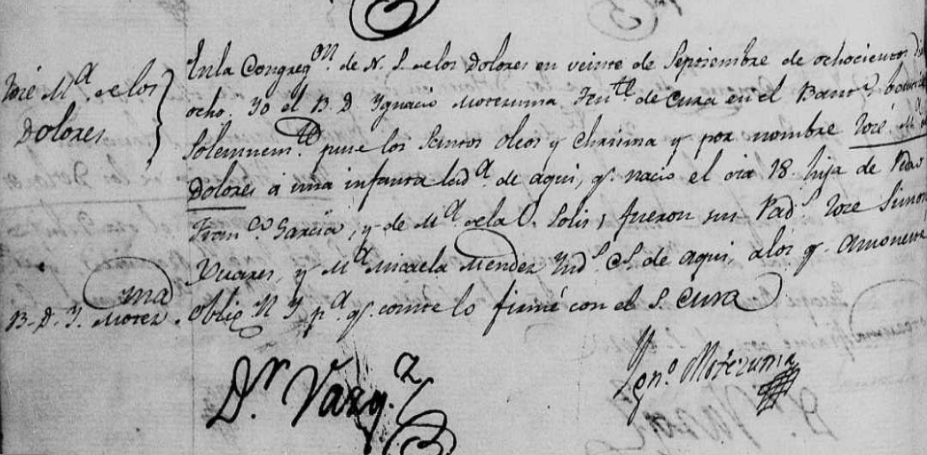 José M.ª de los
Dolores
En la Congreg.on de N. S. de los Dolores en veinte de Septiembre de ochocientos
ocho, Yo el B. D. Ygnacio Motezuma, Ten.te de Cura en el
Solemnem.te puse los Santos Oleos y Chrisma y por nombre José M.ª
Dolores á una infanta Lad.ª de aqui, q. nacio el dia 18. hija de
Fran.co Garcia, y de M.ª de la O. Solis; fueron sus Pad.s José Simon
Xuares, y M.ª Micaela Mendez Ynd.s C.s de aqui, a los q. amoneste
oblig. N Y p.ª q. conste lo firmé con el S. Cura
B. D. Y. Motez.uma
D.r Vazq.z
Ygn.o Motezuma